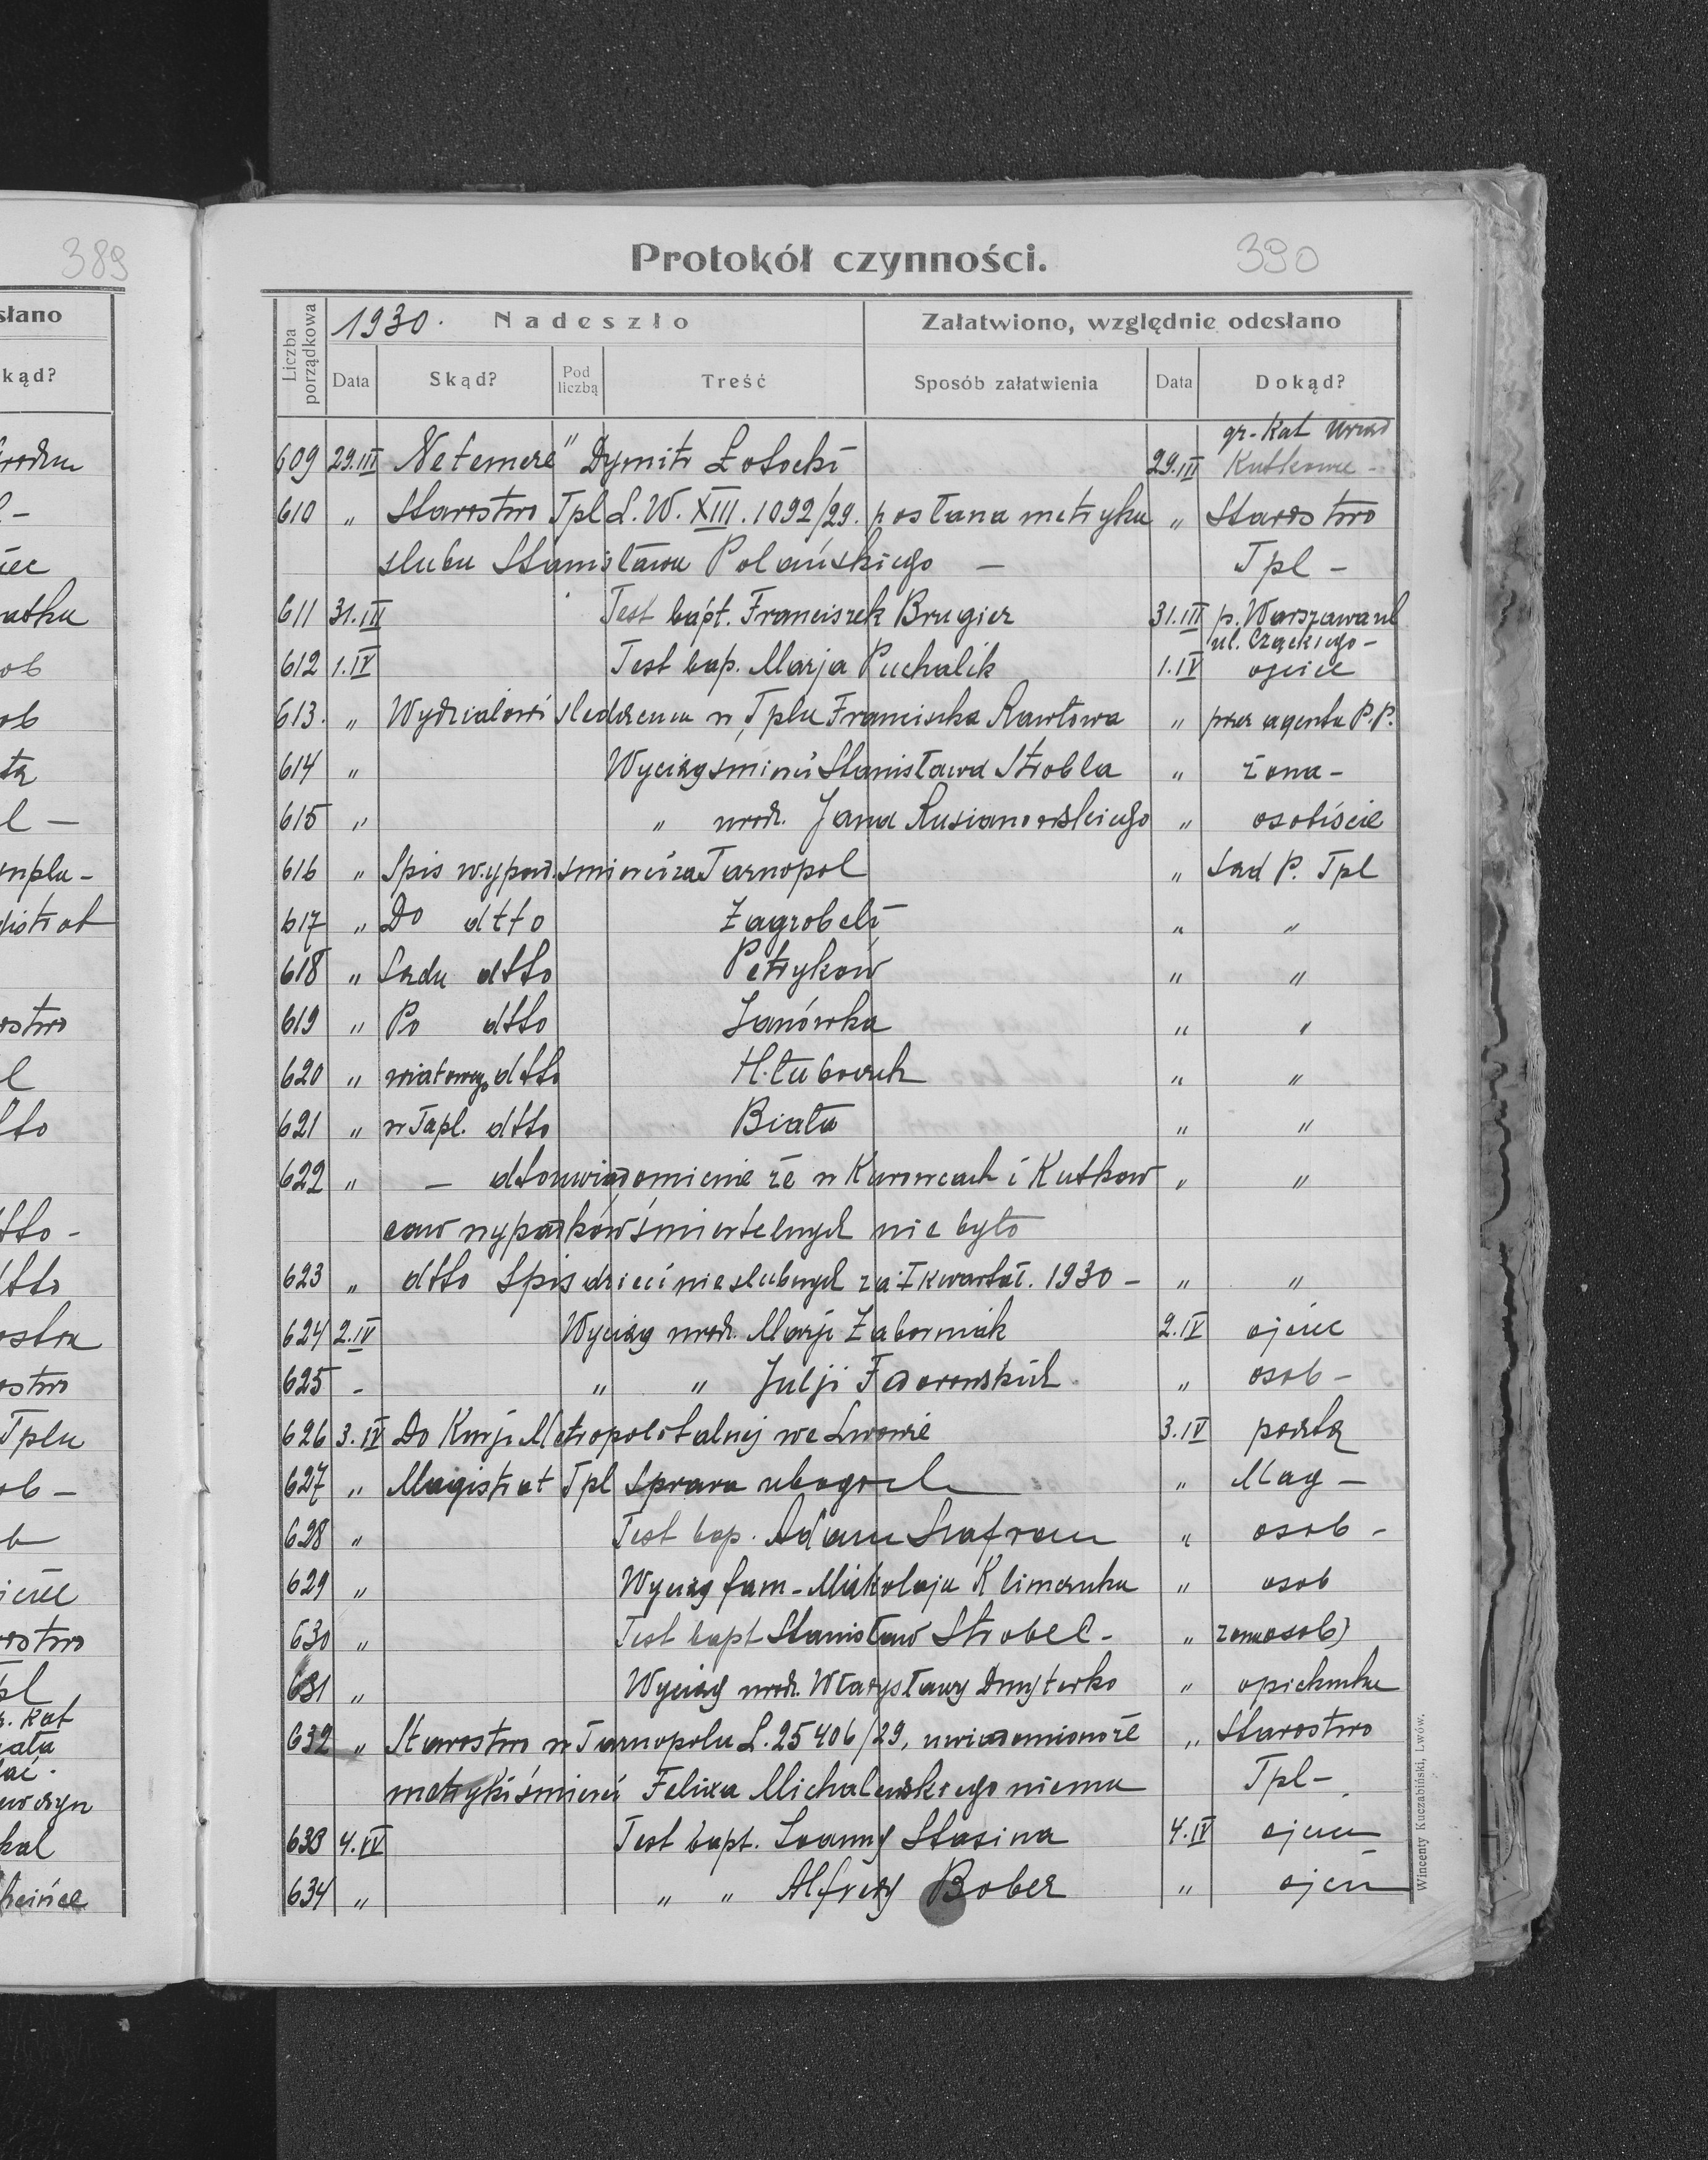 389
słano
kąd?
Protokół czynności.
390
Liczba porządkowa
1930. Nadeszło
Załatwiono, względnie odesłano
Data Skąd? Pod liczbą Treść Sposób załatwienia Data Dokąd?
gr.-kat urząd
609 29.III "Ne temere" Dymitr Łotocki 29.III Kutkowce -
610 " Starostwo Tpl L.W.XIII.1092/29. posłana metryka " Starostwo
ślubu Stanisława Polańskiego — Tpl -
611 31.III Test bapt. Franciszek Brugier 31.III p. Warszawa ul
ul. Czackiego -
612 1.IV Test bap. Marja Puchalik 1.IV ojciec
613. " Wydziałowi śledczemu w Tplu Franciszka " przez agenta P.P.
614 " Wyciąg śmierci Stanisława Strobla " żona -
615 " " urodz. Jana Rusianowskiego " osobiście
616 " Spis wypad. śmierci za Tarnopol " Sąd P. Tpl
617 " Do dtto Zagrobeli " "
618 " Sądu dtto Petryków " "
619 " Po dtto Janówka " "
620 " wiatowego dtto Hłuboczek " "
621 " w Tapl. dtto Biała " "
622 " — dtto uwiadomienie że w Kurowcach i Kutkow " "
cach wypadków śmiertelnych nie było
623 " dtto Spis dzieci nieślubnych za I kwartał. 1930 - " "
624 2.IV Wyciąg urodz. Marji Zaborniak 2.IV ojciec
625 - " " Julji Fedorowskich " osob -
626 3.IV Do Kurji Metropolitalnej we Lwowie 3.IV pocztą
627 " Magistrat Tpl Sprawa ubogich " Mag -
628 " Test bap. Adam Szafran " osob -
629 " Wyciąg fam - Mikołaja Klimczuka " osob
630 " Test bapt Stanisław Strobel - " żona osob)
631 " Wyciąg urodz. Władysławy Dmyterko " opiekunka
632 " Starostwo w Tarnopolu L.25406/29, uwiadomiono że " Starostwo
metryki śmierci Felixa Michalewskiego niema Tpl -
633 4.IV Test bapt. Joanny Stasina 4.IV ojciec
634 " " " Alfredy Bober " ojciec
Wincenty Kuczabiński, Lwów.